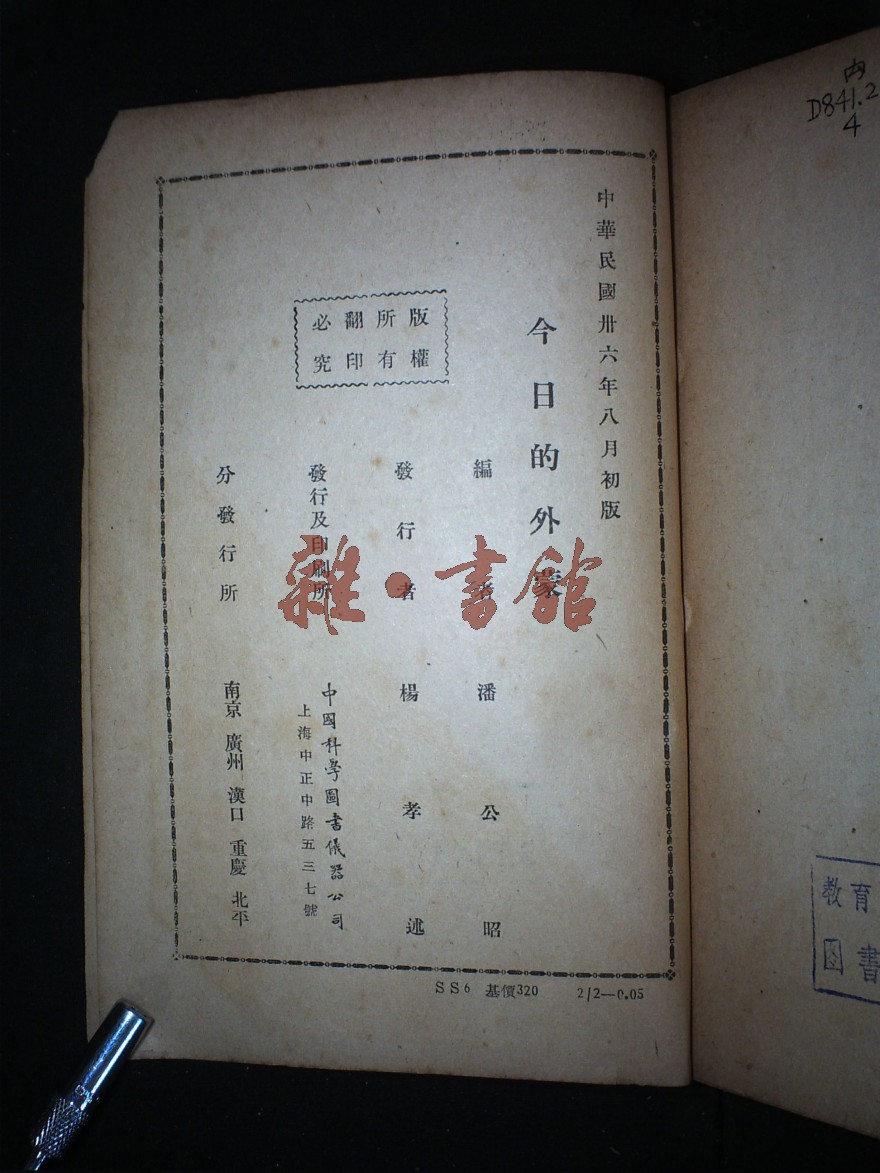 中華民國卅六年八月初版
今日的外蒙
編著者 潘公昭
發行者 楊孝述
發行及印刷所 中國科學圖書儀器公司
上海中正中路五三七號
分發行所 南京 廣州 漢口 重慶 北平
版權所有
翻印必究
SS6 基價320 2/2—0.05
雜·書館
内
D841.2
4
教育
图書